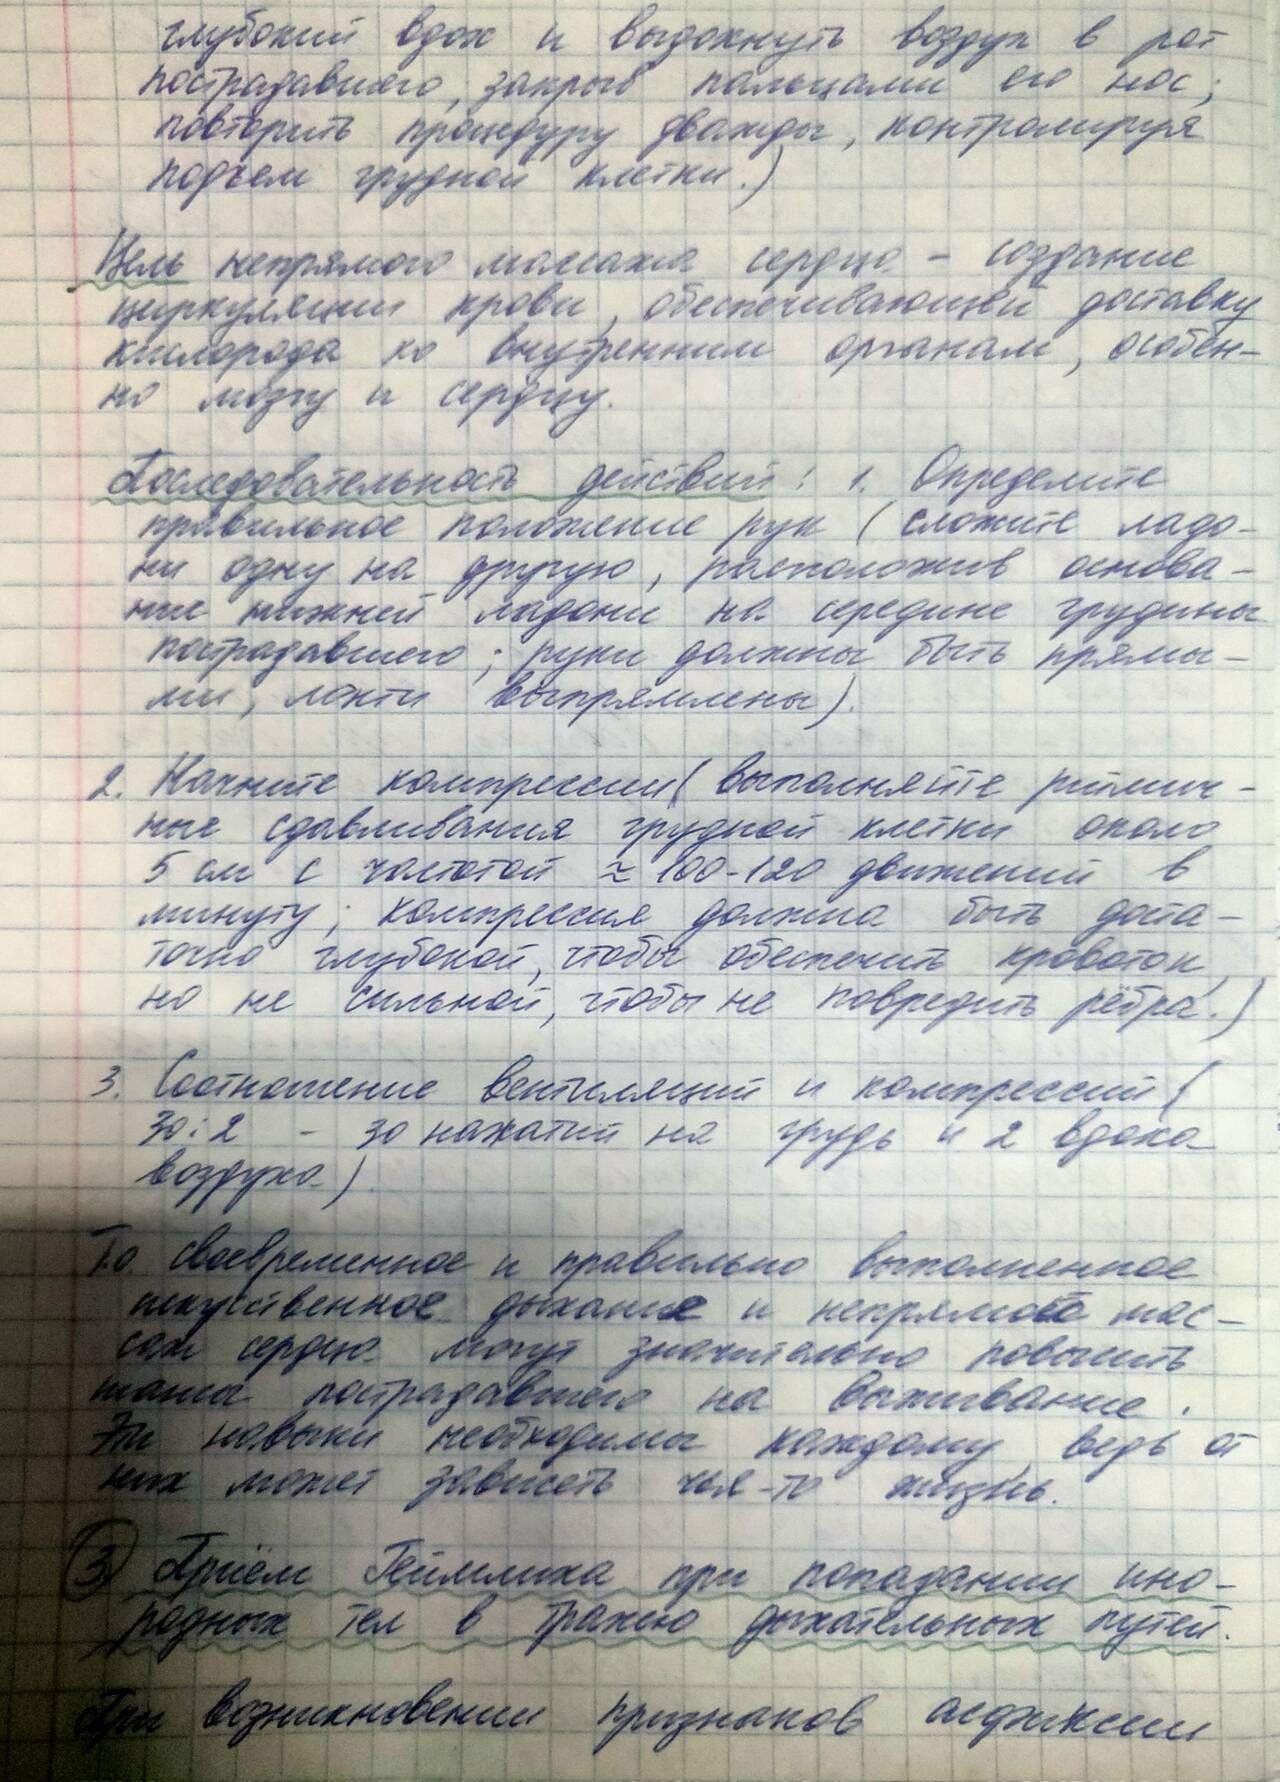 глубокий вдох и выдохнуть воздух в рот
пострадавшего, закрыв пальцами его нос;
повторить процедуру дважды, контролируя
подъем грудной клетки.)
Цель непрямого массажа сердца - создание
циркуляции крови, обеспечивающей доставку
кислорода ко внутренним органам, особен-
но мозгу и сердцу.
Последовательность действий: 1. Определите
правильное положение рук (сложите ладо-
ни одну на другую, расположив основа-
ние нижней ладони на середине грудины
пострадавшего; руки должны быть прямы-
ми, локти выпрямлены).
2. Начните компрессии (выполняйте ритмич-
ные сдавливания грудной клетки около
5 см с частотой ≈ 100-120 движений в
минуту; компрессия должна быть доста-
точно глубокой, чтобы обеспечить кровоток,
но не сильной, чтобы не повредить рёбра.)
3. Соотношение вентиляций и компрессий (
30:2 - 30 нажатий на грудь и 2 вдоха
воздуха)
Т.о. своевременное и правильно выполненное
искуственное дыхание и непрямой мас-
саж сердца могут значительно повысить
шансы пострадавшего на выживание.
Эти навыки необходимы каждому, ведь от
них может зависеть чья-то жизнь.
3 Приём Геймлиха при попадании ино-
родных тел в трахею дыхательных путей.
При возникновении признаков асфиксии